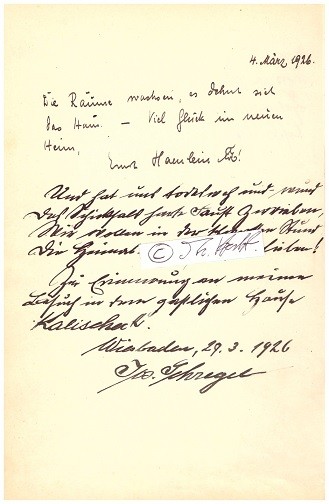 4. März 1926.
Die Räume wachsen, es dehnt sich
das Haus. – Viel Glück im neuen
Heim,
Ernst Haenlein
Und hat uns totdtwach und wund
Des Schicksals harte Faust gerieben,
Wir wollen in der Stund
Die Heimat lieben!
© Th. Hertl
Zur Erinnerung an meinen
Besuch in dem gastlichen Hause
Kalischeck.
Wiesbaden, 29.3.1926
Jos. Schregel